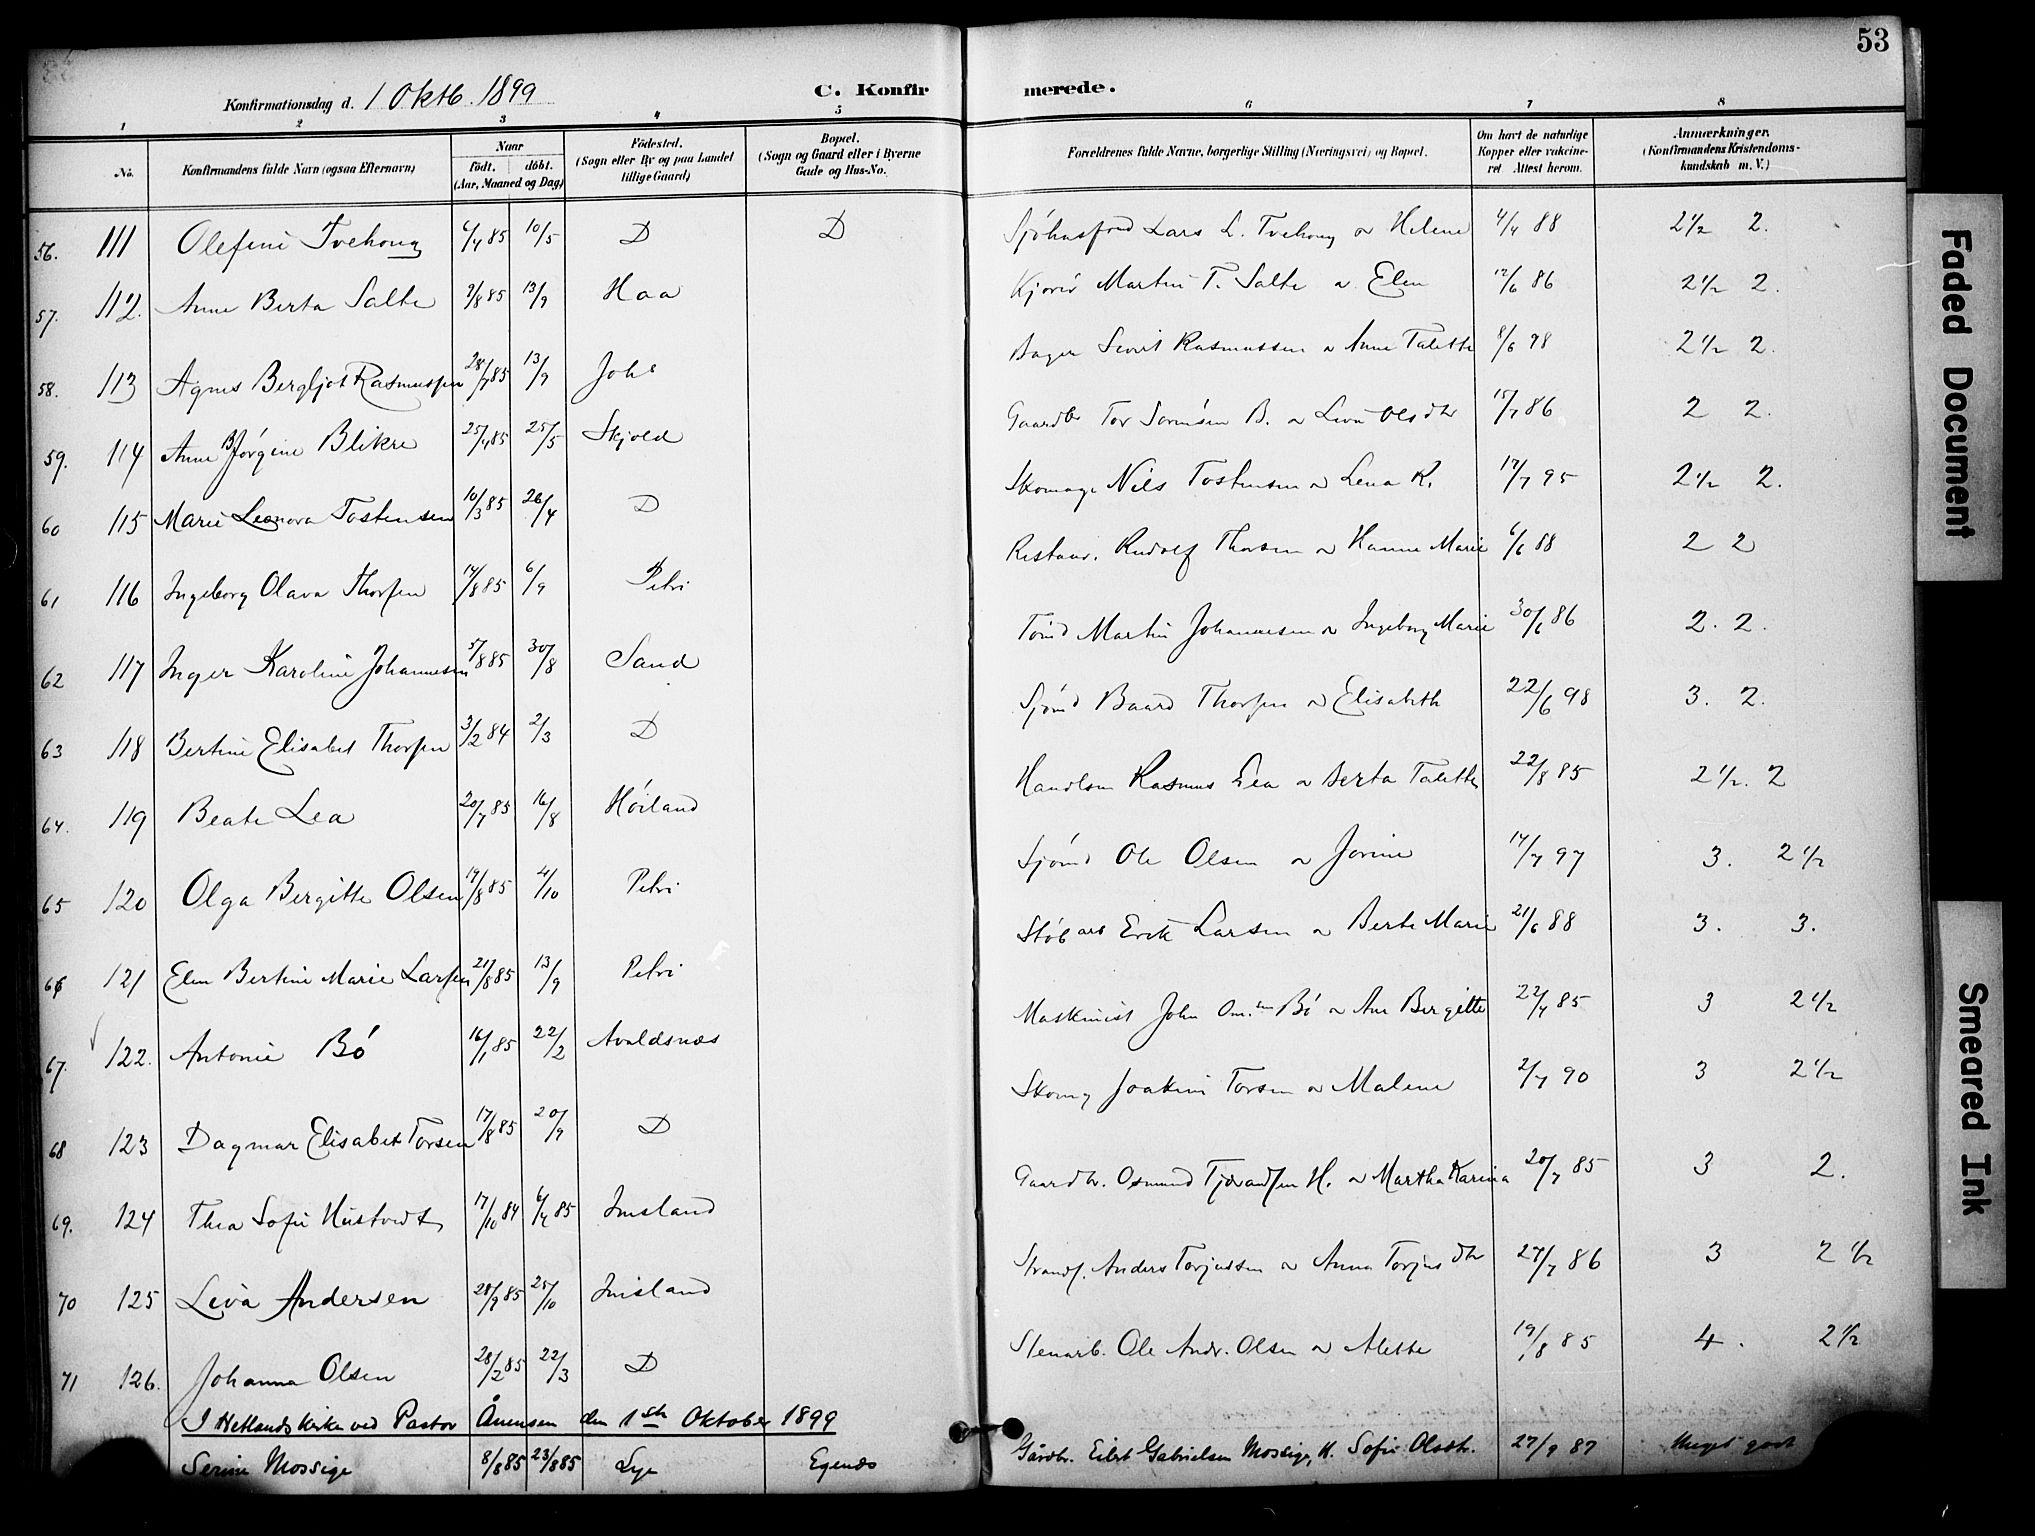 53
Konfirmationsdag d. 1 Oktb. 1899 C. Konfirmerede.
1 2 3 4 5 6 7 8
No. Konfirmandens fulde Navn (ogsaa Efternavn) Naar födt. döbt. (Aar, Maaned og Dag) Födested. (Sogn eller By og paa Landet tillige Gaard) Bopæl. (Sogn og Gaard eller i Byerne Gade og Hus-No. Forældrenes fulde Navne, borgerlige Stilling (Næringsvei) og Bopæl. Om havt de naturlige Kopper eller vakcineret Attest herom. Anmærkninger. (Konfirmandens Kristendomskundskab m. V.)
56. 111 Olefine Tvehoug 6/4 85 10/5 D D Lars L. Tvehoug o Helene 4/4 88 2½ 2.
57. 112. Anne Berta Salte 7/8 85 13/9 Haa Martin T. Salte o Elen 12/6 86 2½ 2.
58. 113 Agnes Bergljot Rasmussen 28/7 85 13/9 Joh: Bager Sivert Rasmussen o Anne Talette 8/6 98 2½ 2.
59. 114 Anne Bjørgine Blikre 25/4 85 25/5 Skjold Gaardbr Tor Sørensen B. o Liva Olsdtr 15/7 86 2 2.
60 115 Marie Leonora Tostensen 10/3 85 26/4 D Skomager Nils Tostensen o Lena R. 17/7 95 2½ 2.
61 116 Ingeborg Olava Thorsen 14/8 85 6/9 Petri Restaur. Rudolf Thorsen o Hanne Marie 6/6 88 2 2
62 117 Inger Karoline Johannesen 5/8 85 30/8 Sand Tømd Martin Johannesen o Ingeborg Marie 30/6 86 2. 2.
63 118 Bertine Elisabet Thorsen 3/2 84 2/3 D Sjømd Baard Thorsen o Elisabeth 22/6 98 3. 2.
64. 119 Beate Lea 20/7 85 16/8 Høiland Handlsm Rasmus Lea o Berta Talette 22/8 85 2½. 2
65 120 Olga Bergitte Olsen 19/8 85 4/10 Petri Sjømd Ole Olsen o Jorine 14/7 97 3. 2½
66 121 Elen Bertine Marie Larsen 21/8 85 13/9 Petri Støb arb Erik Larsen o Berte Marie 21/6 88 3. 3.
67. 122. Antonie Bø 16/1 85 22/2 Avaldsnæs Maskinist John Bø o Ane Bergitte 22/7 85 3 2½
68 123 Dagmar Elisabet Torsen 17/8 85 20/9 D Skomg Joakim Torsen o Malene 2/7 90 3 2½
69. 124 Thea Sofie Hustvedt 17/10 84 6/4 85 Imsland Gaardbr. Osmund Tjerandsen H. o Martha Karina 20/7 85 3 2.
70 125 Liva Andersen 28/9 85 25/10 Imsland Strandf. Anders Torjussen o Anna Torjus dtr 27/7 86 3 2½
71 126. Johanna Olsen 28/2 85 22/3 D Stenarb. Ole Andr. Olsen o Alette 19/8 85 4. 2½
I Hetlands kirke ved Pastor Ånensen den 1ste Oktober 1899
Serine Mossige 8/8 85 23/8 85 Lye Egenæs Gårdbr. Eilert Gabrielsen Mossige, H. Sofie Olsdtr. 27/9 87 Meget godt
Faded Document
Smeared Ink